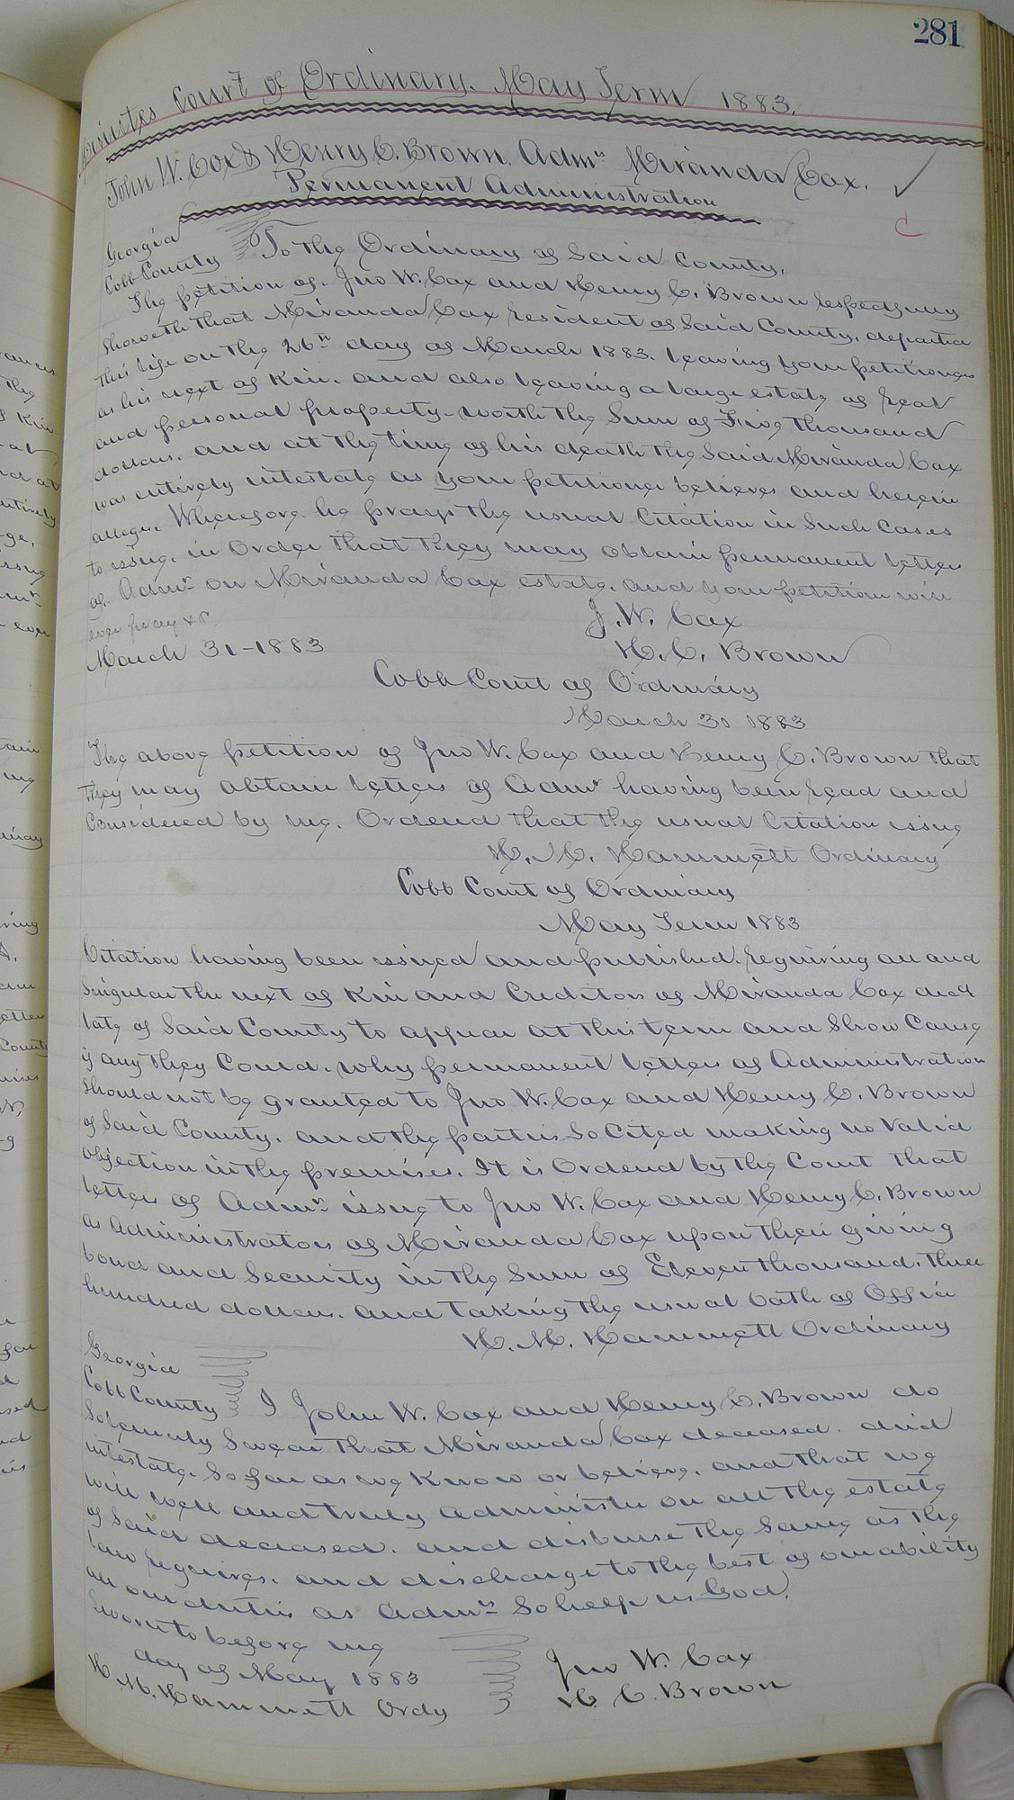 281
Minutes Court of Ordinary. May Term 1883.
John W. Cox & Henry C. Brown. Admrs Miranda Cox.
Permanent Administration
Georgia
Cobb County To the Ordinary of Said County.
The petition of. Jno W. Cox and Henry C. Brown respectfully
showeth that Miranda Cox resident of Said County, departed
this life on the 26th day of March 1883. leaving your petitioner
as his next of Kin. and also leaving a large estate of real
and personal property. worth the Sum of Five thousand
dollars. and at the time of his death the Said Miranda Cox
was entirely intestate as your petitioner believes and herein
alleges. Wherefore he prays the usual Citation in Such Cases
to issue. in Order that they may obtain permanent letters
of. Admr on Miranda Cox estate. and your petition will
ever pray &c
J. W. Cox
March 31-1883
H. C. Brown
Cobb Court of Ordinary
March 31 1883
The above petition of Jno W. Cox and Henry C. Brown that
they may obtain letters of Admr having been read and
Considered by me. Ordered that the usual Citation issue
H. M. Hammett Ordinary
Cobb Court of Ordinary
May Term 1883
Citation having been issued and published. requiring all and
Singular the next of Kin and Creditors of Miranda Cox decd
late of Said County to appear at this term and Show Cause
if any they Could. why permanent letters of Administration
Should not be granted to Jno W. Cox and Henry C. Brown
of Said County. and the parties So Cited making no Valid
objection in the premises. It is Ordered by the Court that
letters of Admrs issue to Jno W. Cox and Henry C. Brown
as Administrators of Miranda Cox upon their giving
bond and Security in the Sum of Eleven thousand. three
hundred dollars. and taking the usual Oath of Office
H. M. Hammett Ordinary
Georgia
Cobb County I John W. Cox and Henry C. Brown do
Solemnly Swear that Miranda Cox deceased. died
intestate. So far as we Know or believe. and that we
will well and truly administer on all the estate
of Said deceased. and disburse the Same as the
law requires. and discharge to the best of our ability
all our duties as Admrs So help us God.
Sworn to before me
day of May 1883
Jno W. Cox
H. M. Hammett Ordy
H. C. Brown